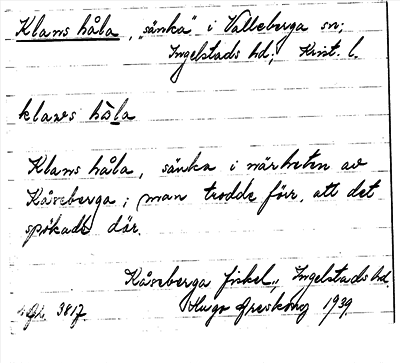 Klaws håla, "sänka" i Valleberga sn;
Ingelstads hd; Krist. l.
klaws håla
Klaws håla, sänka i närheten av
Kåseberga; man trodde förr, att det
spökade där.
Kåseberga fiskel., Ingelstads hd.
3817. Hugo Areskoug 1939.